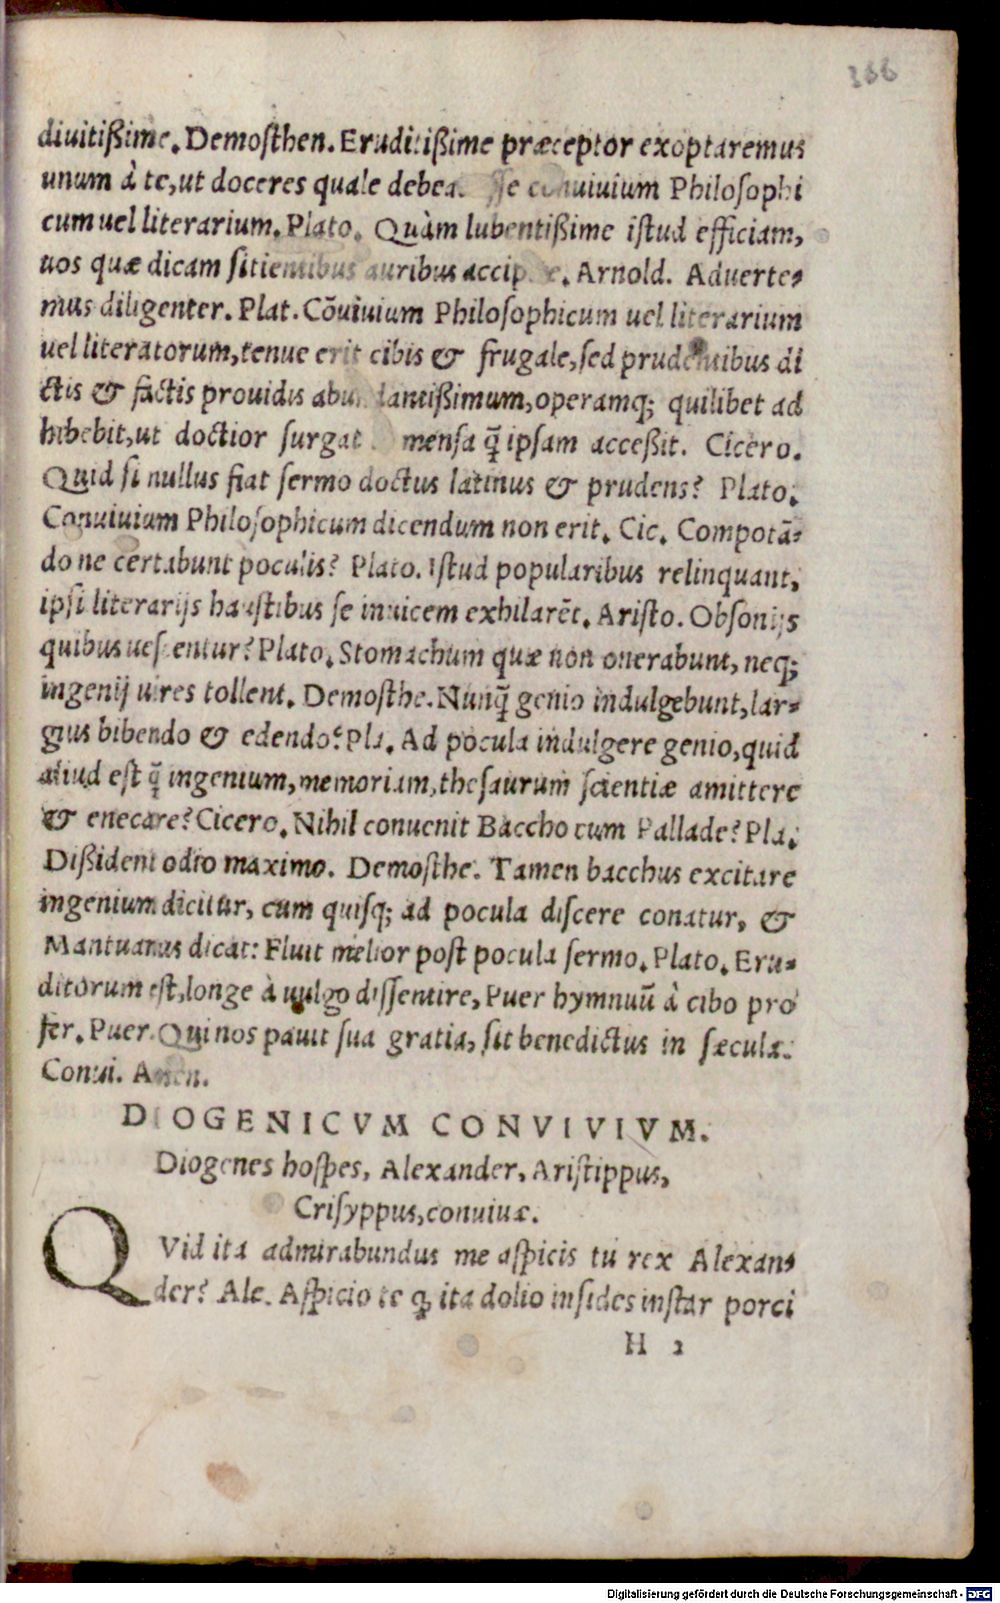 388
diuitißime. Demosthen. Eruditißime præceptor exoptaremus
unum à te, ut doceres quale debea. sse conuiuium Philosophi
cum uel literarium. Plato. Quàm lubentißime istud efficiam,
uos quæ dicam sitientibus auribus accip e. Arnold. Aduerte-
mus diligenter. Plat. Cōuiuium Philosophicum uel literarium
uel literatorum, tenue erit cibis & frugale, sed prudentibus di
ctis & factis prouidis abundantißimum, operamq; quilibet ad
hibebit, ut doctior surgat mensa q̃ ipsam acceßit. Cicero.
Quid si nullus fiat sermo doctus latinus & prudens? Plato.
Conuiuium Philosophicum dicendum non erit. Cic. Compotā-
do ne certabunt poculis? Plato. Istud popularibus relinquant,
ipsi literarijs haustibus se inuicem exhilarēt. Aristo. Obsonijs
quibus uescentur? Plato. Stomachum quæ non onerabunt, neq;
ingenij uires tollent. Demosthe. Nunq̃ genio indulgebunt, lar-
gius bibendo & edendo? Pla. Ad pocula indulgere genio, quid
aliud est q̃ ingenium, memoriam, thesaurum scientiæ amittere
& enecare? Cicero. Nihil conuenit Baccho cum Pallade? Pla.
Dißident odio maximo. Demosthe. Tamen bacchus excitare
ingenium dicitur, cum quisq; ad pocula discere conatur, &
Mantuanus dicat: Fluit melior post pocula sermo. Plato. Eru-
ditorum est, longe à uulgo dissentire, Puer hymnuū à cibo pro
fer. Puer. Qui nos pauit sua gratia, sit benedictus in sæcula.
Conui. Amen.
DIOGENICVM CONVIVIVM.
Diogenes hospes, Alexander, Aristippus,
Crisyppus, conuiuæ.
QVid ita admirabundus me aspicis tu rex Alexan-
der? Ale. Aspicio te ꝙ ita dolio insides instar porci
H 2
Digitalisierung gefördert durch die Deutsche Forschungsgemeinschaft - DFG